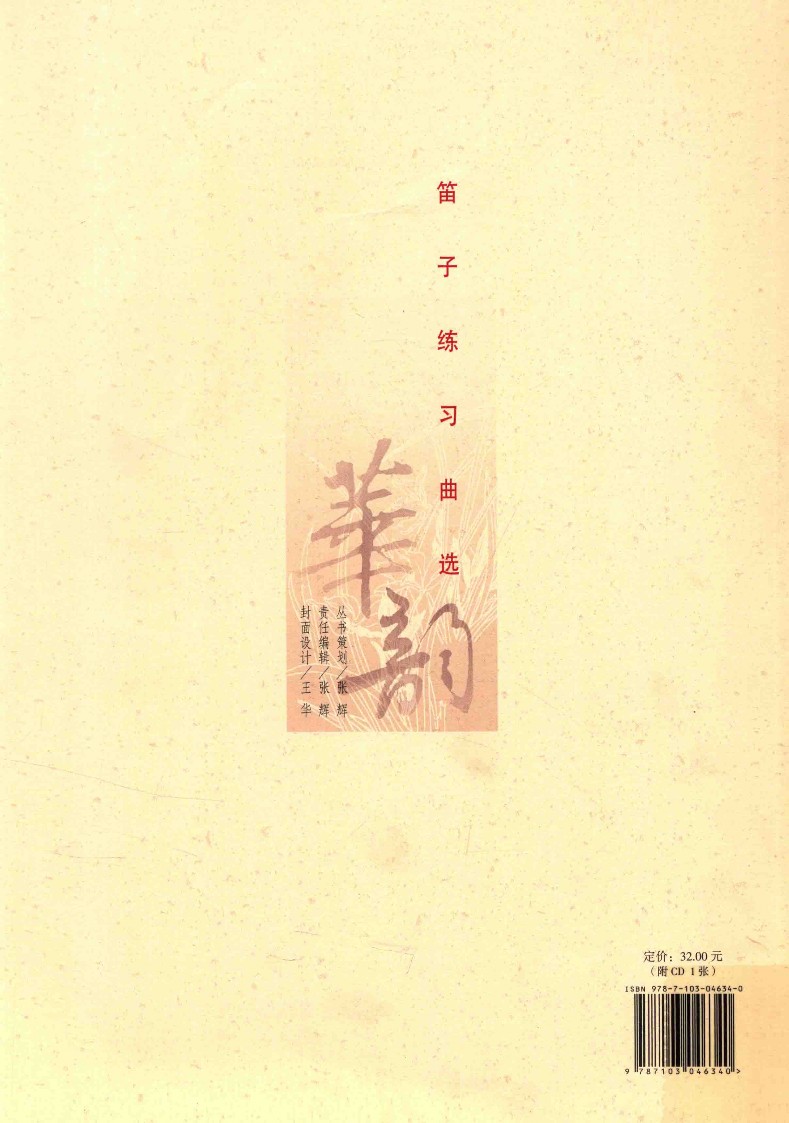 笛子练习曲选
華韵
丛书策划/张辉
责任编辑/张辉
封面设计/王华
定价：32.00 元
（附 CD 1 张）
ISBN 978-7-103-04634-0
9 787103 046340 >